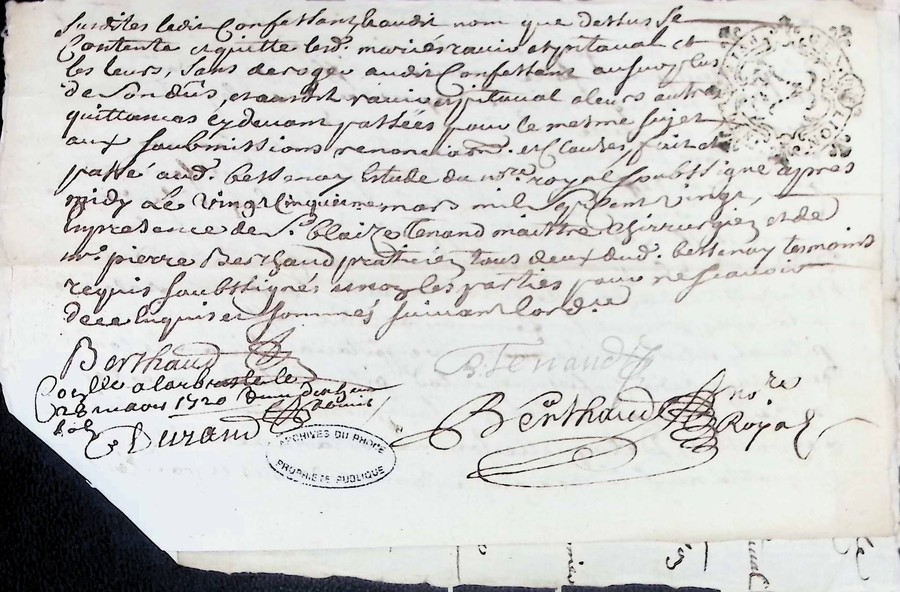 susdites ledit Confessant audit nom que dessus se
Contente et quitte lesd. mariés ravier et pitaval et
les leurs, sans deroger audit Confessant au surplus
de son dûs, et audit ravier et pitaval a leurs autres
quittances cy devant passées pour le mesme sujet
aux soubmissions renonciaons. et clauses, fait et
passé aud. bessenay Estude du nore. royal soubsigné apres
midy Le vingt cinquieme mars mil sept Cent vingt,
En presence de Sr. blaize Tenand maittre chirurgien et de
mr. pierre Berthaud praticien tous deux dud. bessenay tesmoins
requis soubsignés et non les parties pour ne scavoir
de ce Enquis et sommés suivant lordre
Berthaud
B. Tenand
Conllé a larbresle le
28 mars 1720
Durand
Berthaud nore
Royal
ARCHIVES DU RHÔNE
PROPRIÉTÉ PUBLIQUE